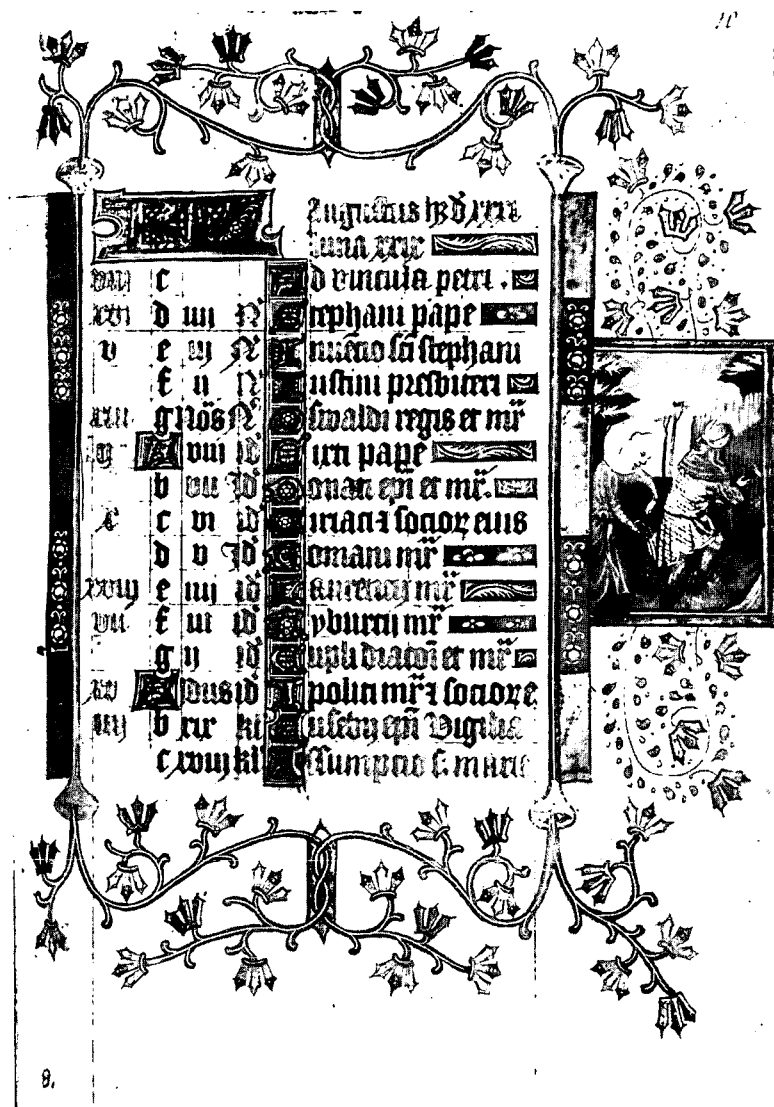 10
KL Augustus hꝫ d xxxi
luna xxix
viii c Ad vincula petri .
xvi d iiii N Stephani pape
v e iij N Inuẽcio sci stephani
f ii N Iustini presbiteri
xiii g Nõs N Oswaldi regis et mr̃
ij A viii id Sixti pape
b vii Id Donati epĩ et mr̃.
x c vi id Ciriaci ⁊ socioꝝ eius
d v Id Romani mr̃
xviij e iiij id Laurencij mr̃
vii f iii id Tyburcij mr̃
g ij id Eupli diacoñ et mr̃
xv A Idus id Ipoliti mr̃ ⁊ socioꝝ e
iiij b xix kl Eusebij epĩ Vigilia
c xviij kl Assumptio s. marie
8.